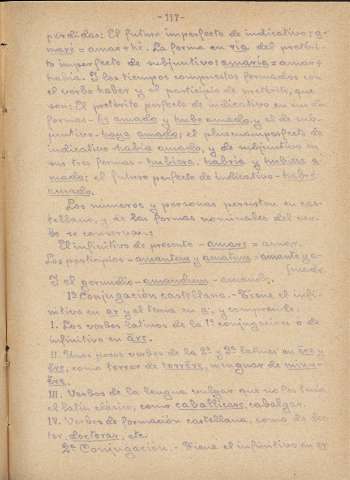 - 117 -
perdidas: El futuro imperfecto de indicativo: a-
maré = amar + hé. La forma en ria del pretéri-
to imperfecto de subjuntivo: amaria = amar +
habia. Y los tiempos compuestos formados con
el verbo haber y el participio de pretérito, que
son: El pretérito perfecto de indicativo en sus dos
formas - he amado y hube amado, y el de sub-
juntivo - haya amado; el pluscuamperfecto de
indicativo habia amado, y de subjuntivo en
sus tres formas - hubiera, habria y hubiese a-
mado; el futuro perfecto de indicativo - habré
amado.
Los números y personas persisten en cas-
tellano, y de las formas nominales del ver-
bo se conservan:
El infinitivo de presente - amare = amar.
Los participios - amantem y amatum = amante y a-
mado
Y el gerundio - amandum - amando.
1ª Conjugación castellana. - Tiene el infi-
nitivo en ar y el tema en a, y comprende:
I. Los verbos latinos de la 1ª conjugación o de
infinitivo en are.
II. Unos pocos verbos de la 2ª y 3ª latinas en ere y
ĕre, como torrar de torrēre, menguar de minu-
ĕre.
III. Verbos de la lengua vulgar que no los tenía
el latín clásico, como caballicare, cabalgar.
IV. Verbos de formación castellana, como de doc-
tor, doctorar, etc.
2ª Conjugación. - Tiene el infinitivo en er